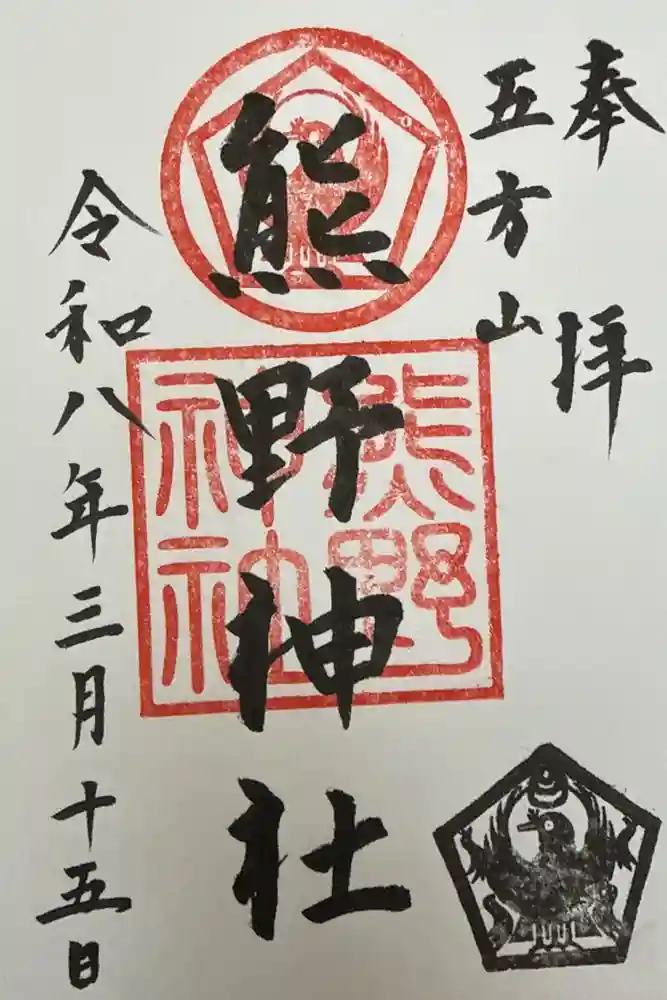 奉拝
五方山
熊野神社
熊野
神社
令和八年三月十五日